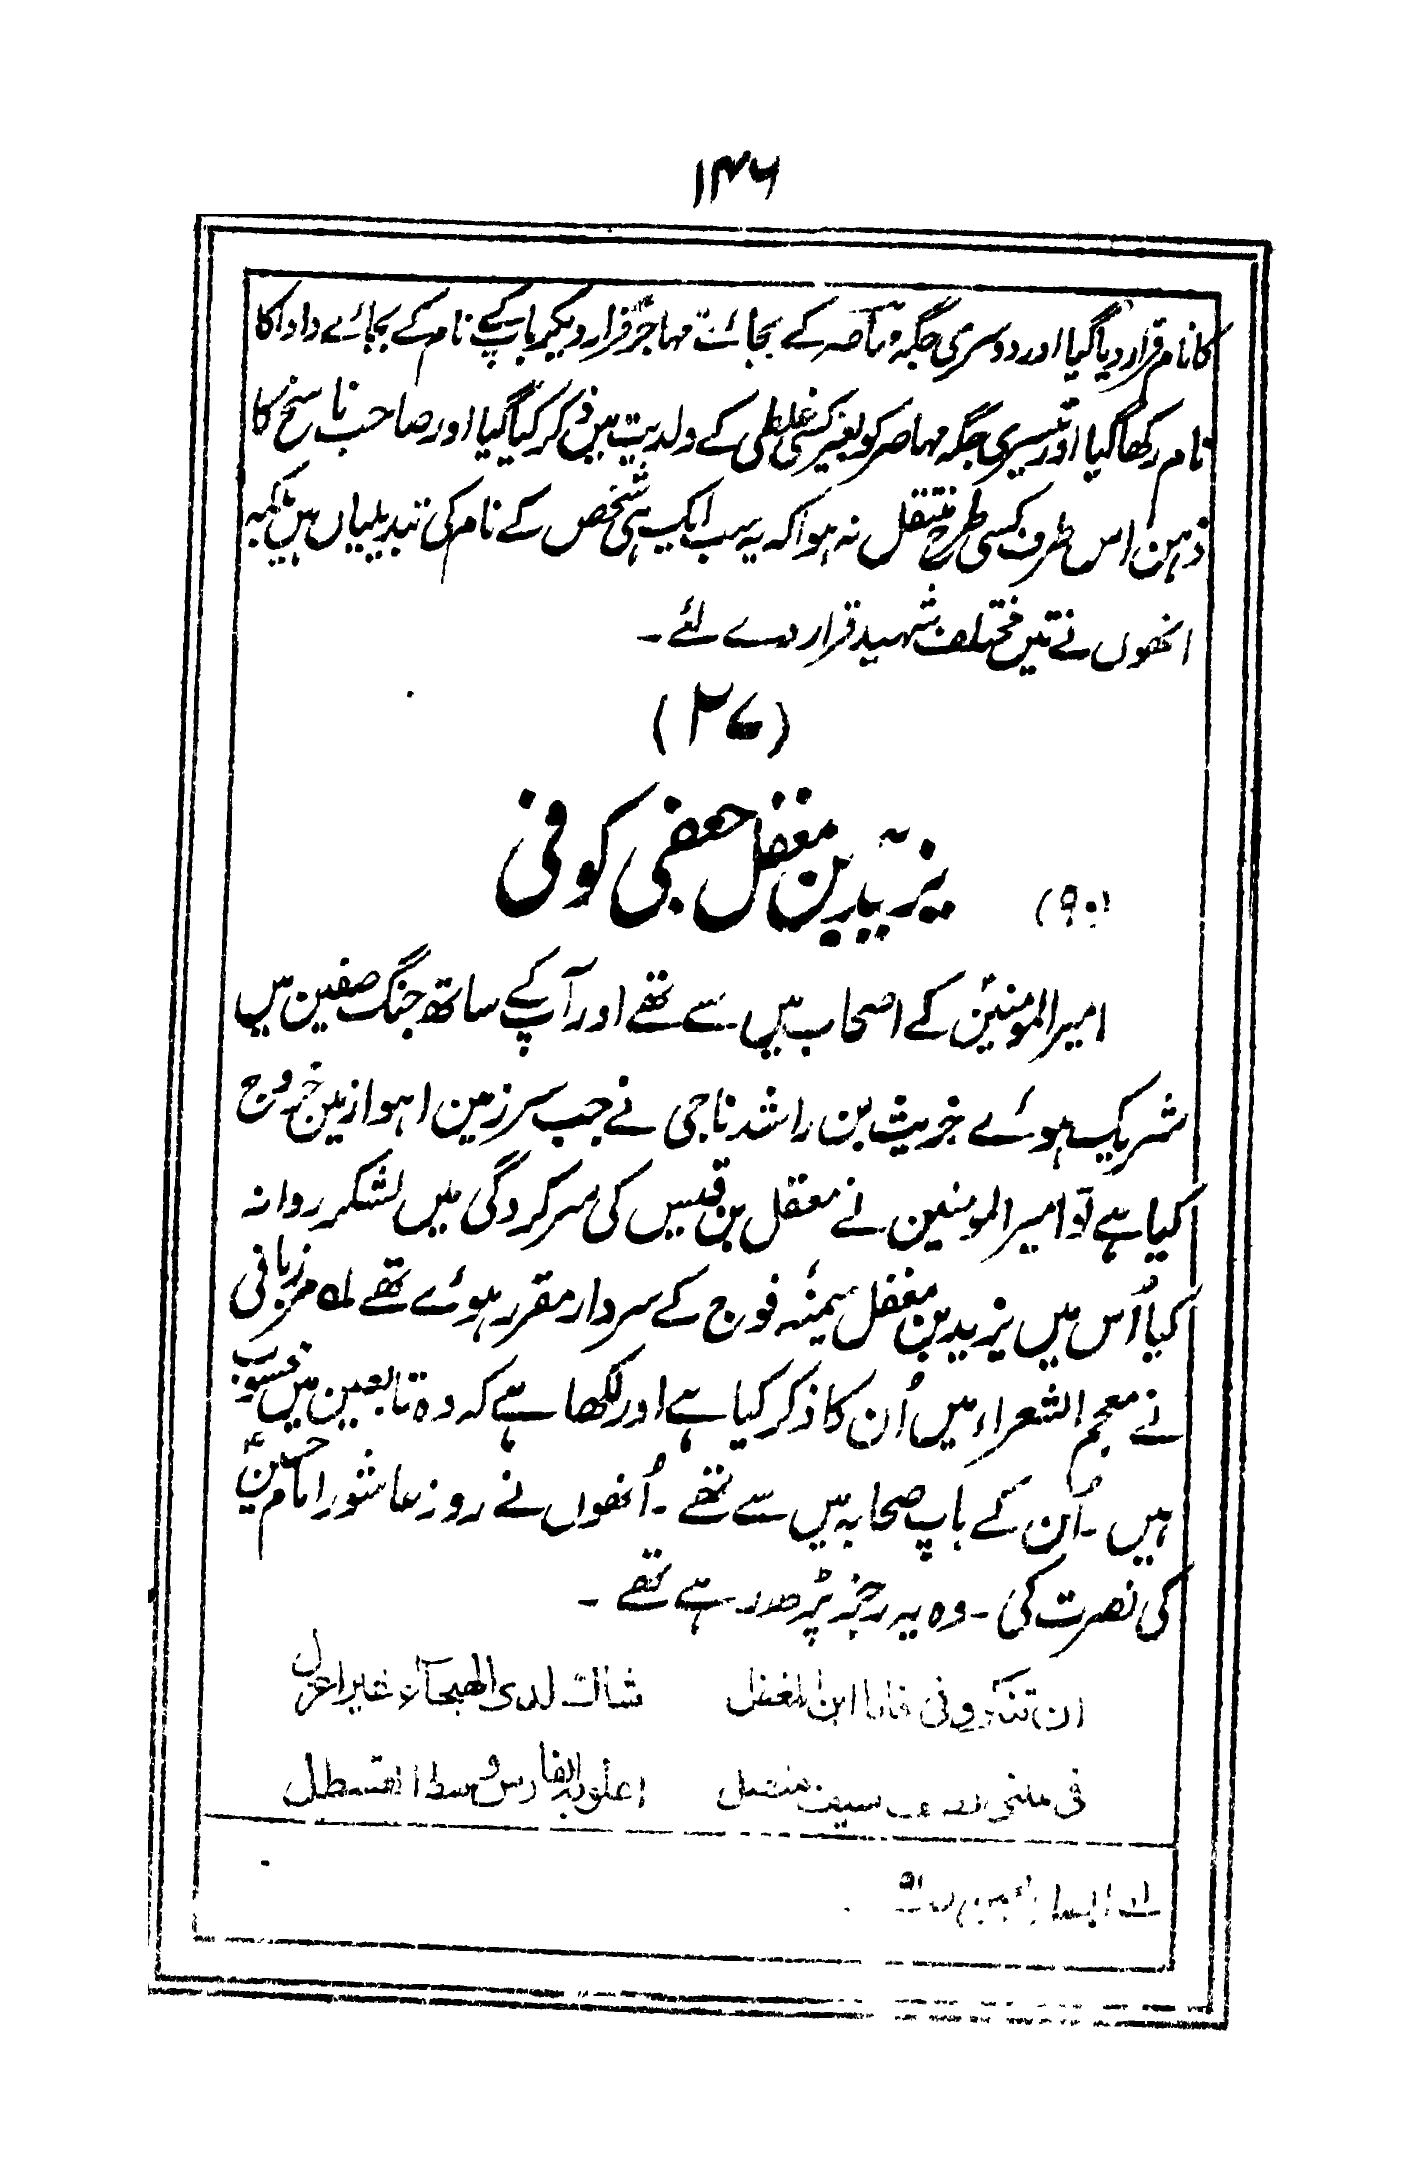 ۱۴۶
کا نام قرار دیا گیا اور دوسری جگہ مہاصر کے بجائے مہاجر قرار دیکر باپ کے نام کے بجائے دادا کا
نام رکھا گیا اور تیسری جگہ مہاصر کو بغیر کسی غلطی کے ولدیت میں ذکر کیا گیا اور صاحب ناسخ کا
ذہن اس طرف کسی طرح منتقل نہ ہوا کہ یہ سب ایک ہی شخص کے نام کی تبدیلیاں ہیں بلکہ
انھوں نے تین مختلف شہید قرار دے لئے ۔
(۲۷)
یزید بن مغفل جعفی کوفی
(۹۰)
امیرالمومنینؑ کے اصحاب میں سے تھے اور آپ کے ساتھ جنگ صفین میں
شریک ہوئے خریث بن راشد ناجی نے جب سرزمین اہواز میں خروج
کیا ہے تو امیرالمومنین نے معقل بن قیس کی سرکردگی میں لشکر روانہ
کیا اُس میں یزید بن مغفل میمنہ فوج کے سردار مقرر ہوئے تھے لہ مرزبانی
نے معجم الشعراء میں اُن کا ذکر کیا ہے اور لکھا ہے کہ وہ تابعین میں محسوب
ہیں ۔ اُن کے باپ صحابہ میں سے تھے ۔ اُنھوں نے روز عاشور امام حسینؑ
کی نصرت کی ۔ وہ یہ رجز پڑھ رہے تھے ۔
ان تنکرونی فانا ابن المغفل شاك لدی الهیجآء غیر اعزل
فی سیف منصل اعلو به الفارس وسط القسطل
لہ ابصار العین